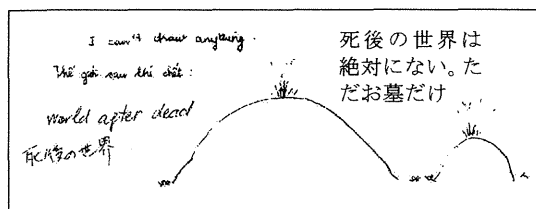 I can't draw anything.
Thế giới sau khi chết :
world after dead
死後の世界
死後の世界は
絶対にない。た
だお墓だけ